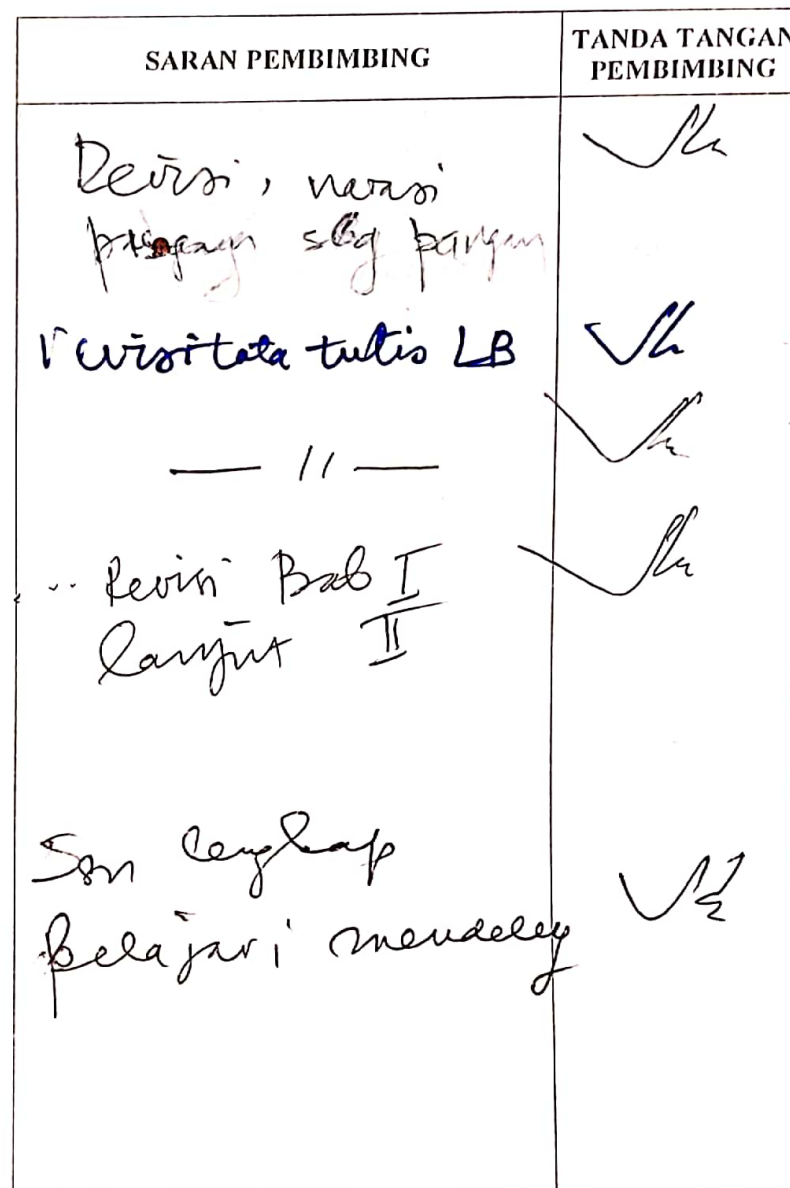 SARAN PEMBIMBING
TANDA TANGAN
PEMBIMBING
Revisi, narasi
sbg
revisi tata tulis LB
— // —
Revisi Bab I
lanjut II
lengkap
Pelajari mendeley